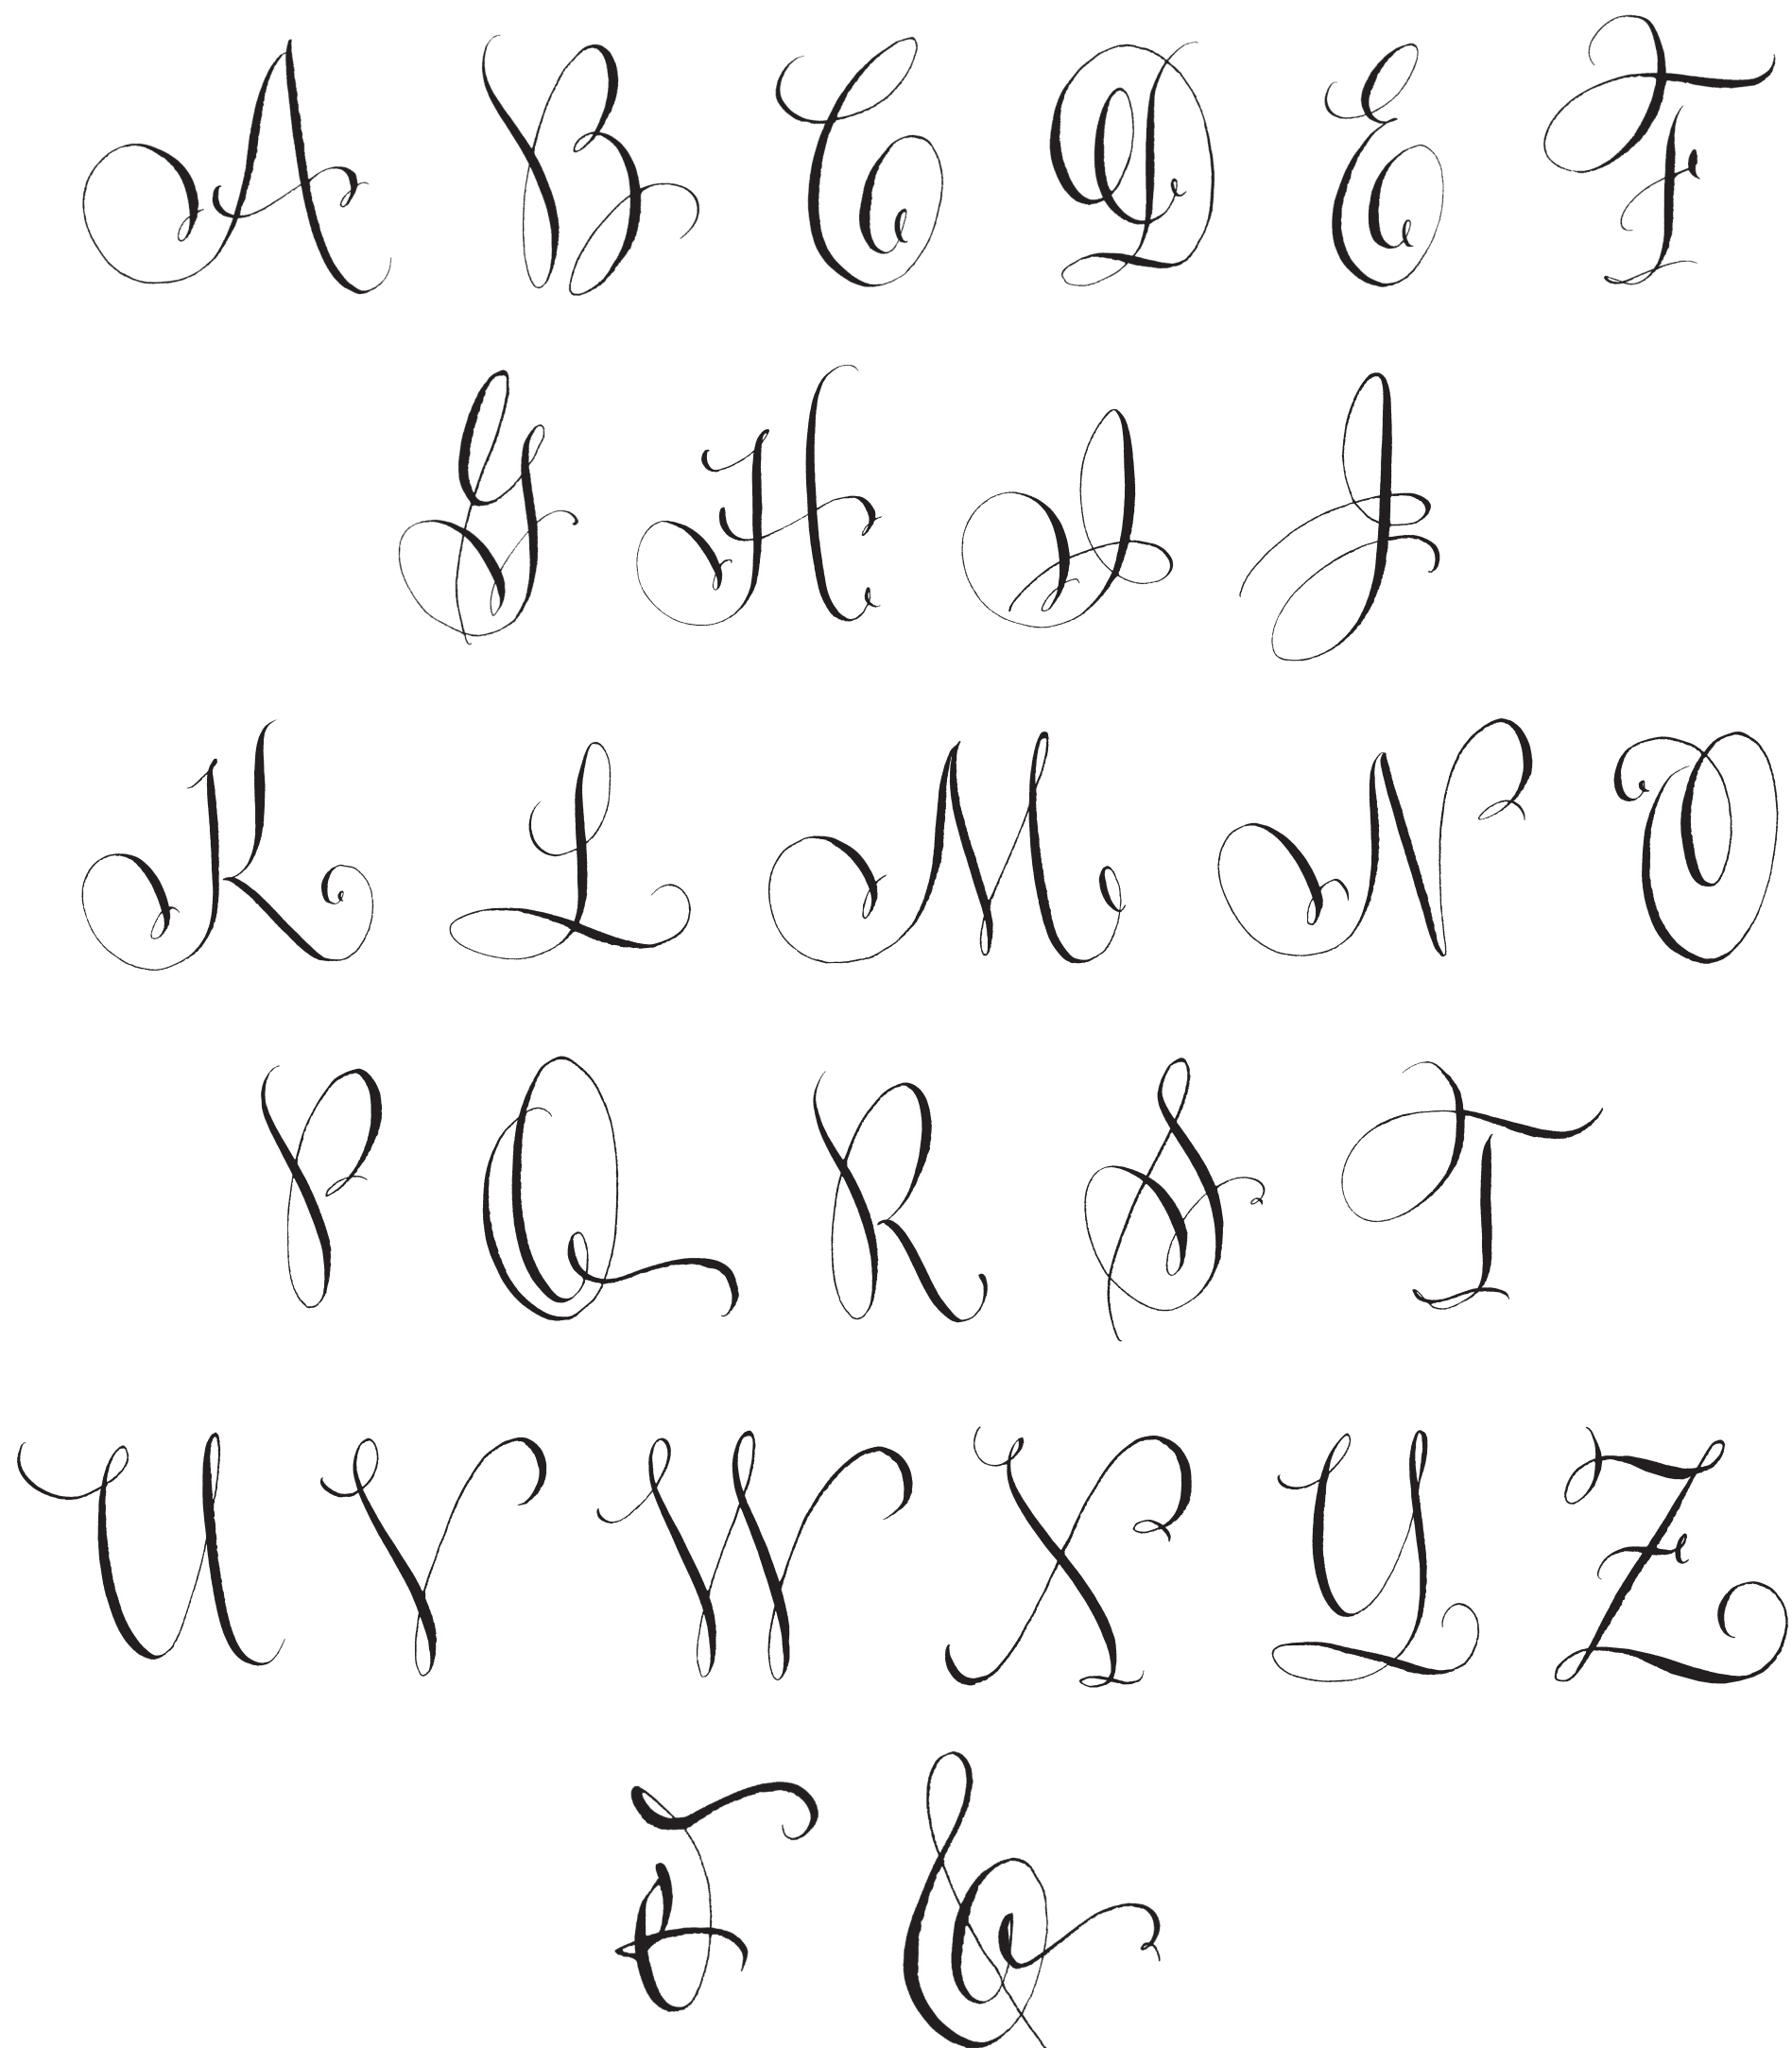 A B C D E F
G H I J
K L M N O
P Q R S T
U V W X Y Z
&